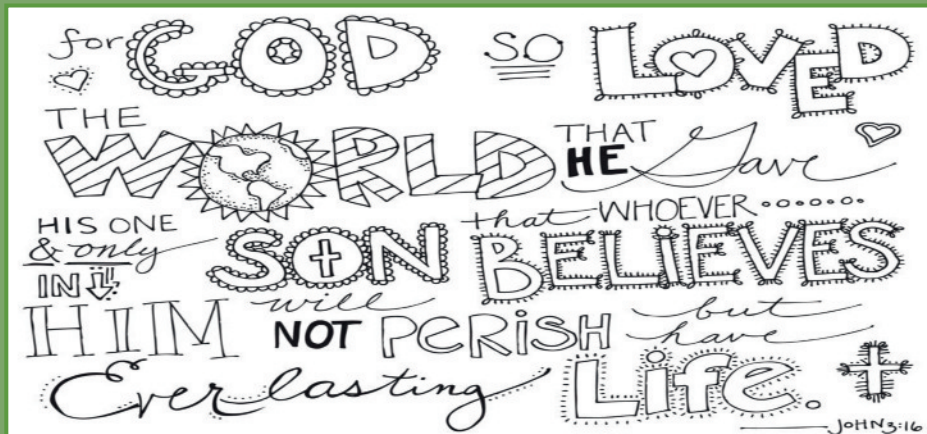 for GOD SO LOVED
THE
WORLD THAT
HE Gave
HIS ONE
& only SON that WHOEVER
IN BELIEVES
HIM will NOT PERISH but
have
Everlasting Life.
JOHN 3:16